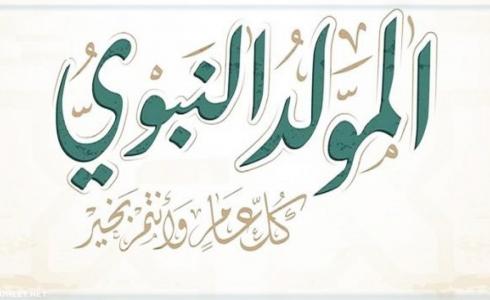 المَوْلِدُ النَّبَوِيّ
كُلّ عَامٍ وَأَنْتُمْ بِخَيْر